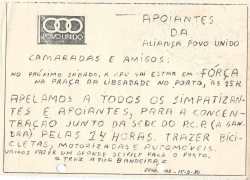 POVO UNIDO
APOIANTES
DA
ALIANÇA POVO UNIDO
CAMARADAS E AMIGOS:
NO PRÓXIMO SÁBADO, A APU VAI ESTAR EM FÓRÇA
NA PRAÇA DA LIBERDADE NO PORTO, ÀS
APELAMOS A TODOS OS SIMPATIZAN
TES E APOIANTES, PARA A CONCEN
TRAÇÃO JUNTO DA SEDE DO P.C.P.
PELAS 14 HORAS. TRAZER BICI
CLETAS, MOTORIZADAS E AUTOMÓVEIS.
VAMOS FAZER UM GRANDE DESFILE PARA O PORTO.
TRAZ A TUA BANDEIRA